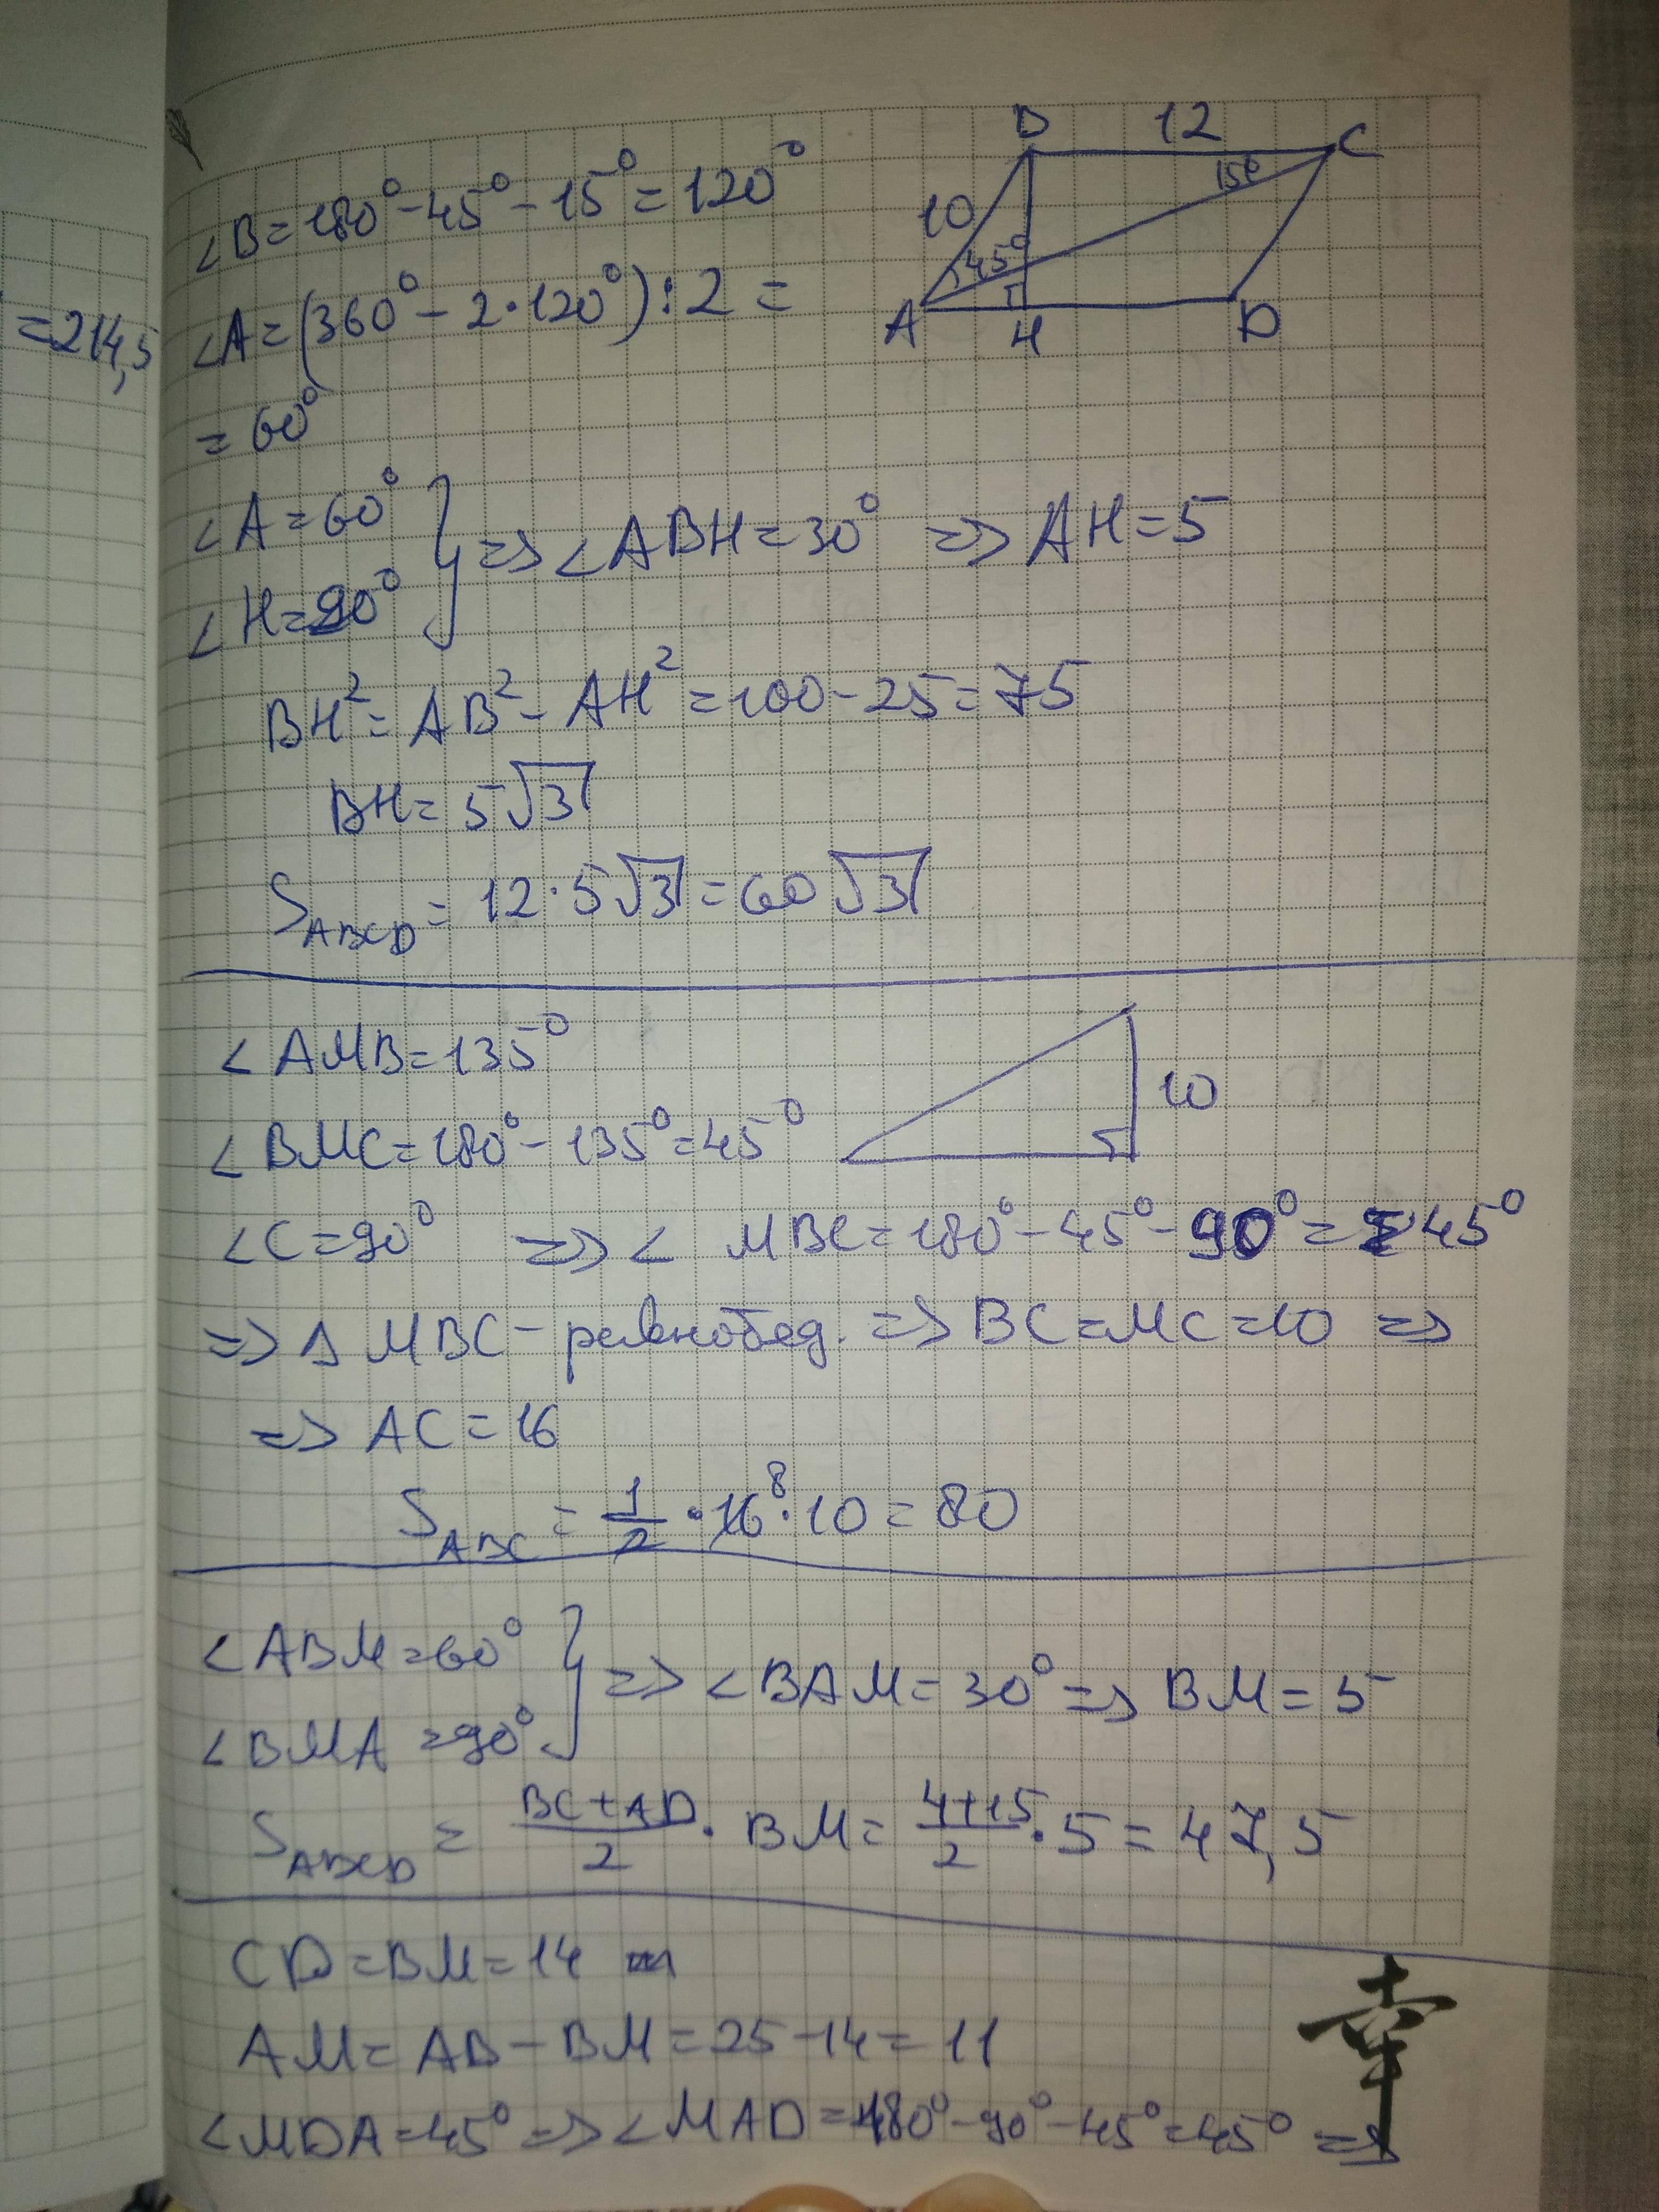 =214,5
∠B=180°-45°-15°=120°
∠A=(360°-2·120°):2=
=60°
B 12 C
10
45°
15°
A H D
∠A=60°
∠H=90°
} => ∠ABH=30° => AH=5
BH²=AB²-AH²=100-25=75
BH=5√3
S_ABCD=12·5√3=60√3
∠AMB=135°
10
∠BMC=180°-135°=45°
∠C=90° => ∠ MBC=180°-45°-90°=45°
=> Δ MBC - равнобед. => BC=MC=10 =>
=> AC=16
S_ABC = 1/2 · 16 8 · 10 = 80
∠ABM=60°
∠BMA=90°
} => ∠BAM=30° => BM=5
S_ABCD = (BC+AD)/2 · BM = (4+15)/2 · 5 = 47,5
CD=BM=14
AM=AB-BM=25-14=11
∠MDA=45° => ∠MAD=180°-90°-45°=45° =>
幸